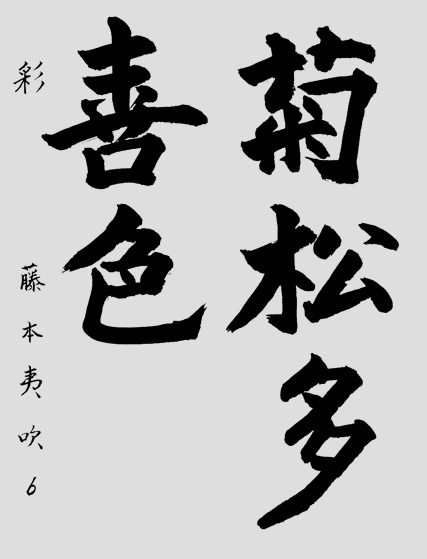 菊松多
喜色
彩 藤本夷吹6